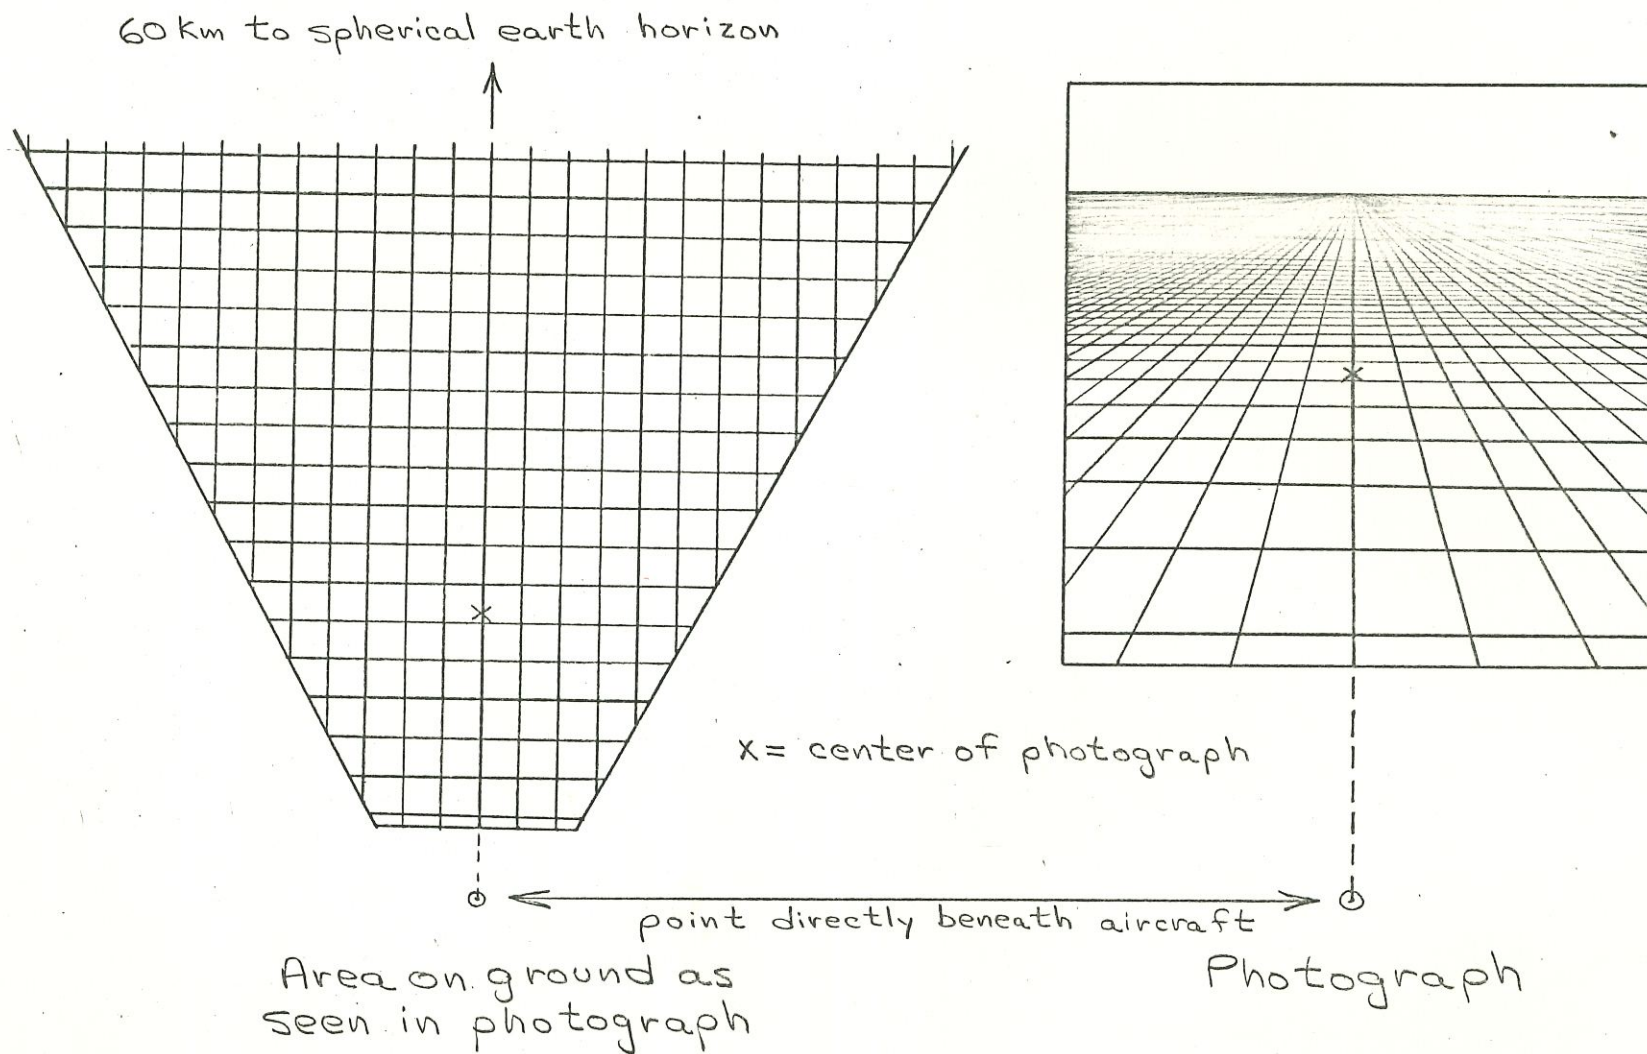 60 km to spherical earth horizon
x = center of photograph
point directly beneath aircraft
Area on ground as
seen in photograph
Photograph